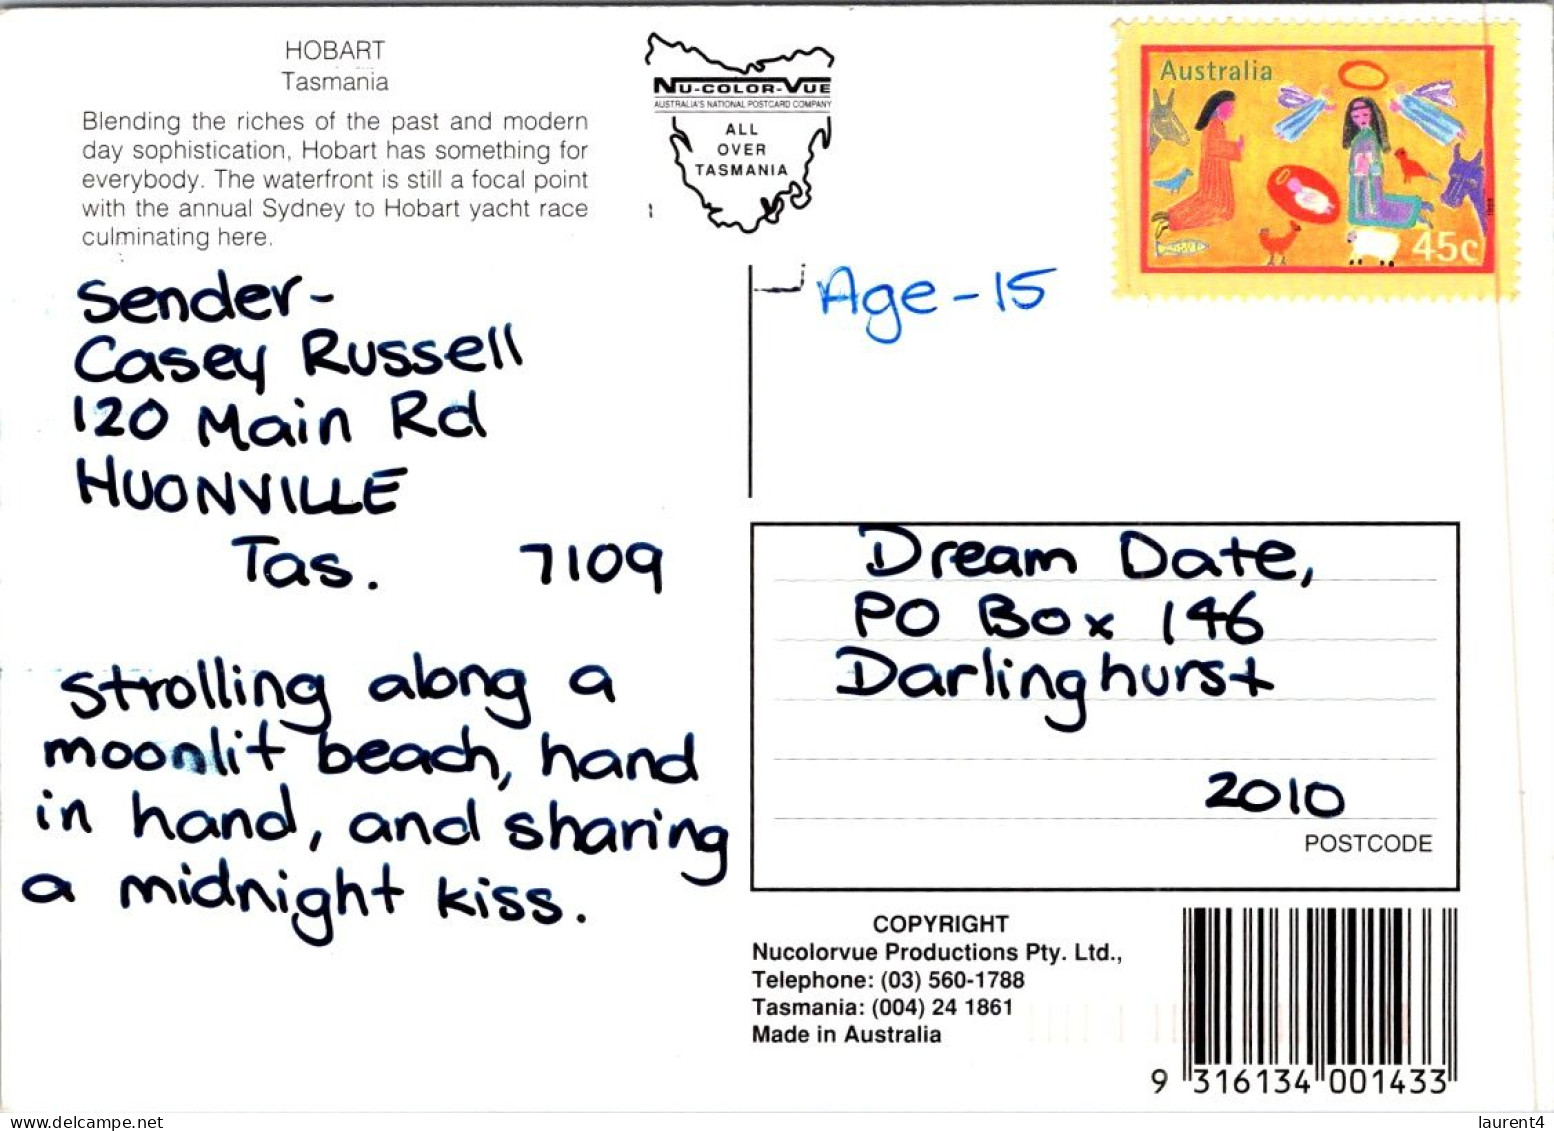 HOBART
Tasmania
Blending the riches of the past and modern
day sophistication, Hobart has something for
everybody. The waterfront is still a focal point
with the annual Sydney to Hobart yacht race
culminating here.
NU-COLOR-VUE
AUSTRALIA'S NATIONAL POSTCARD COMPANY
ALL
OVER
TASMANIA
Australia
45c
Sender-
Casey Russell
120 Main Rd
HUONVILLE
Tas. 7109
Age-15
strolling along a
moonlit beach, hand
in hand, and sharing
a midnight kiss.
Dream Date,
PO Box 146
Darlinghurst
2010
POSTCODE
COPYRIGHT
Nucolorvue Productions Pty. Ltd.,
Telephone: (03) 560-1788
Tasmania: (004) 24 1861
Made in Australia
9 316134 001433
www.delcampe.net
laurent4